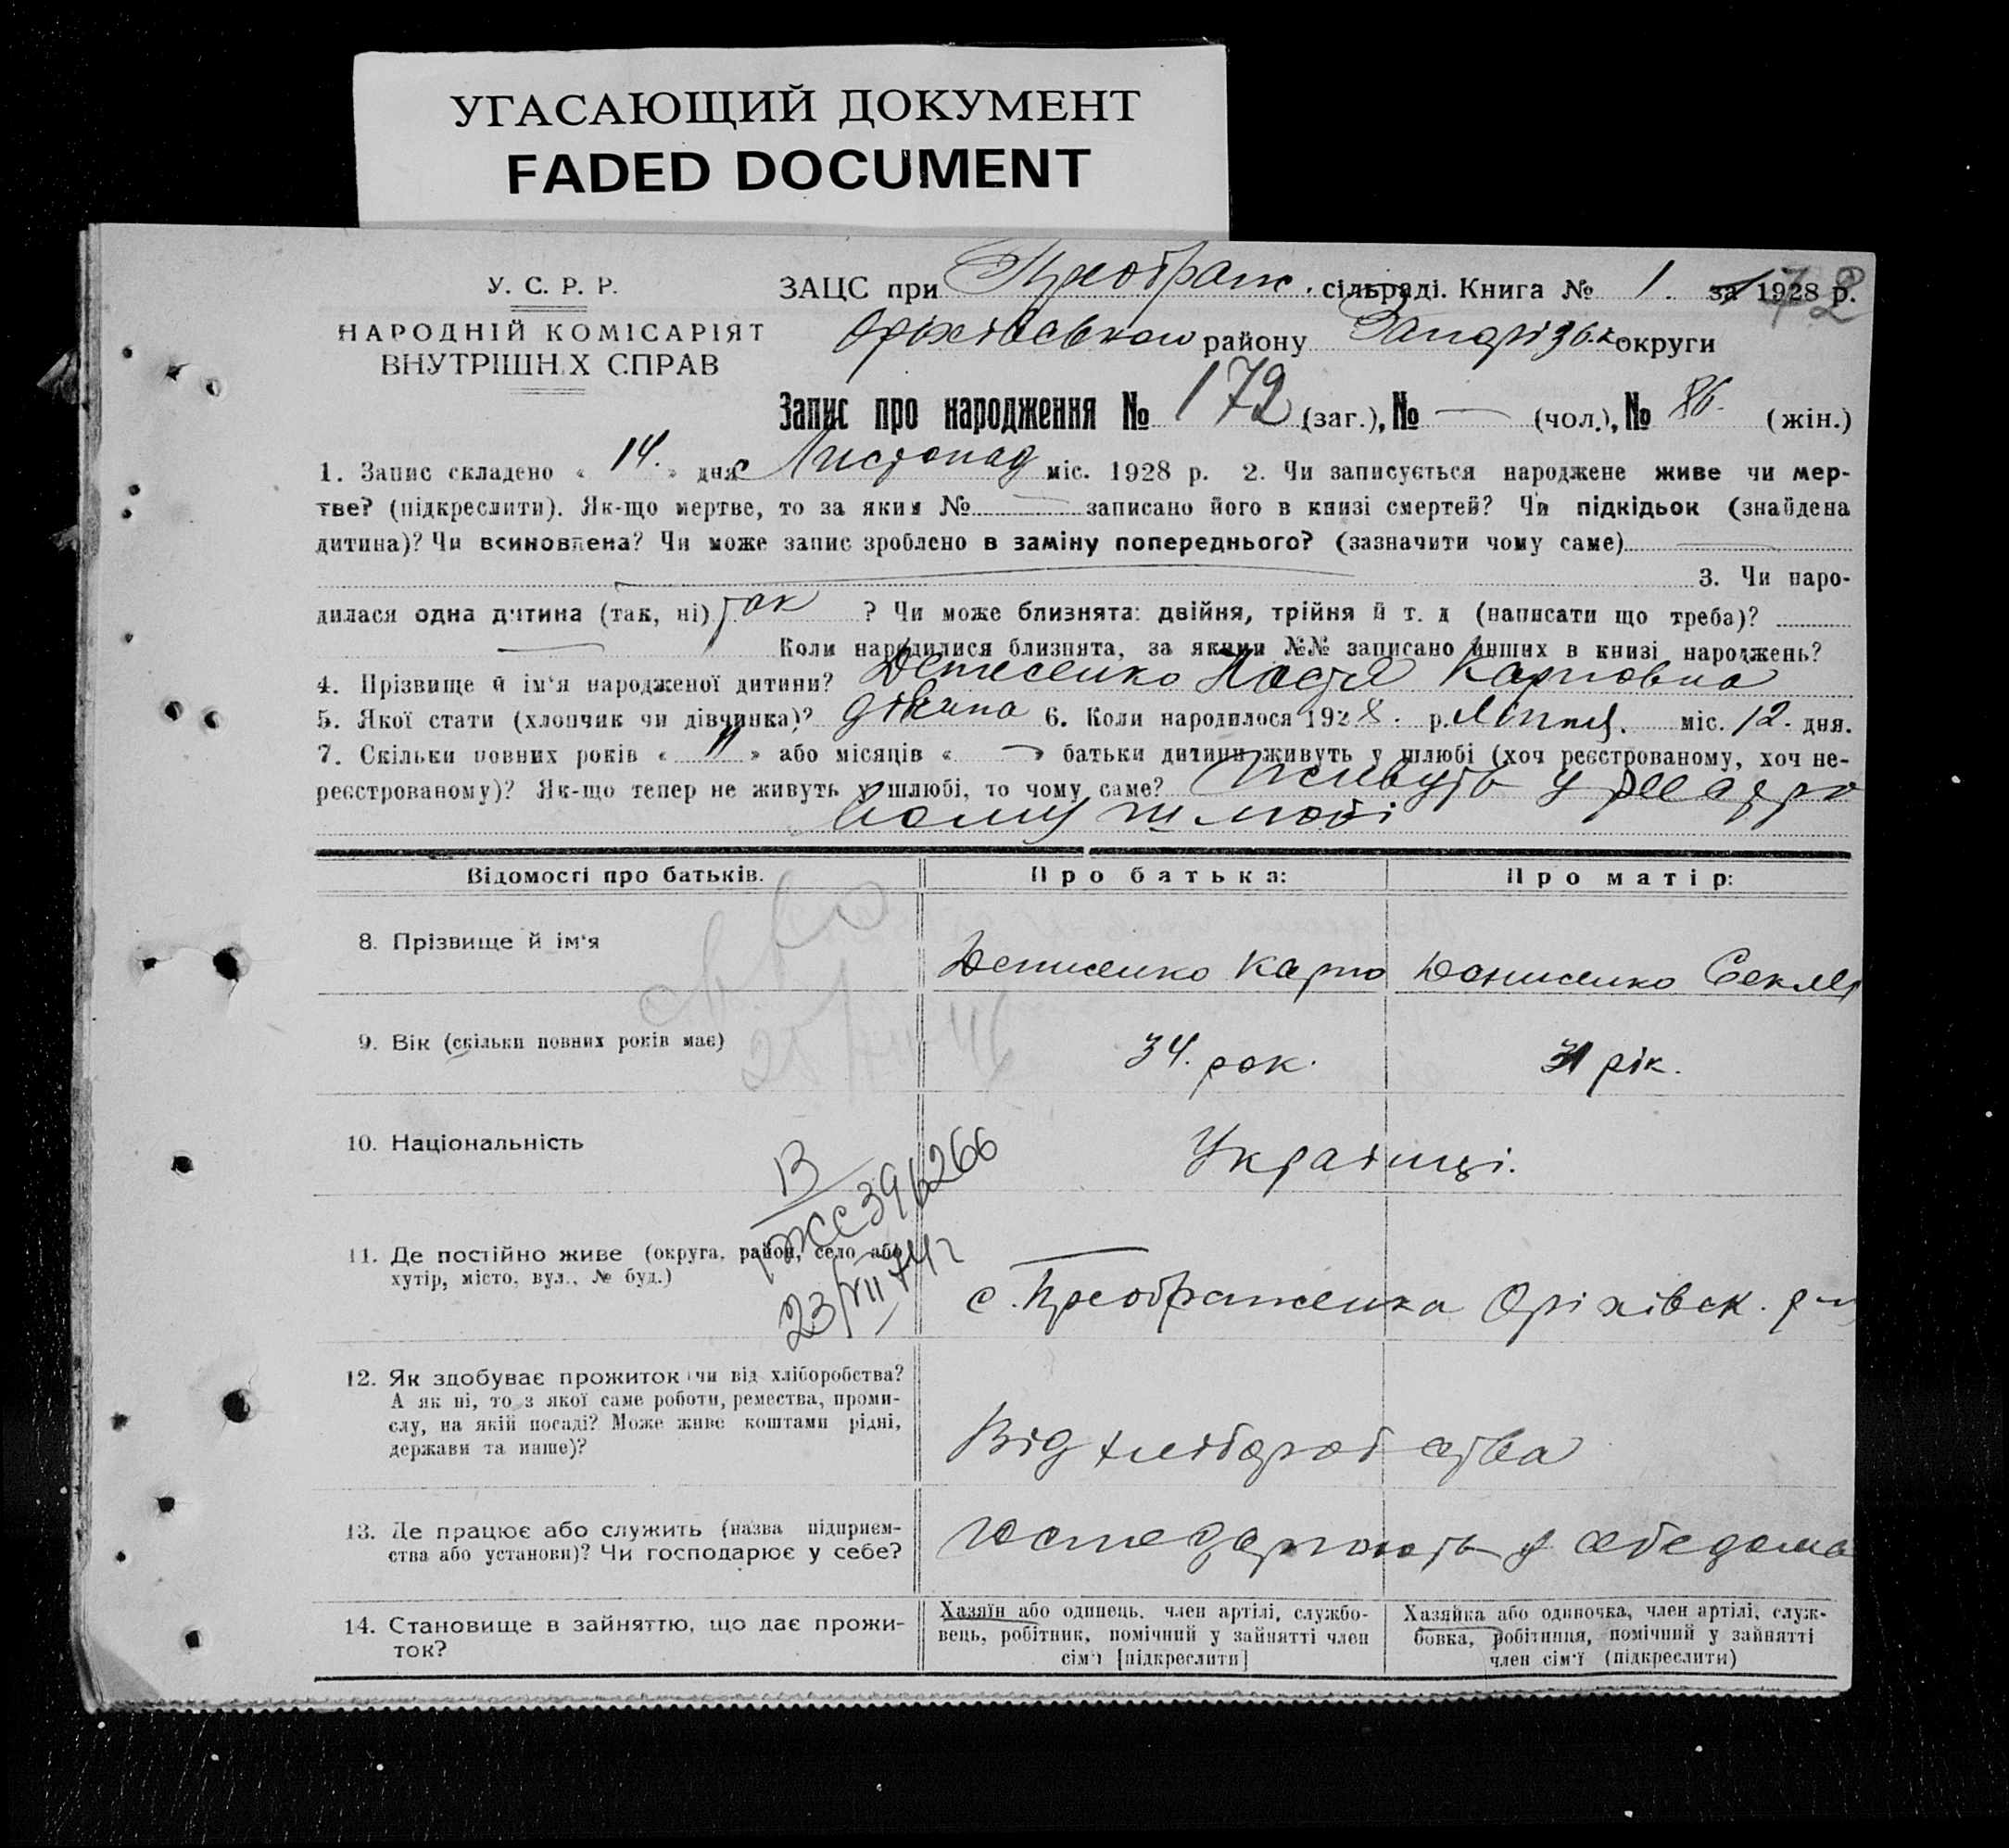 УГАСАЮЩИЙ ДОКУМЕНТ
FADED DOCUMENT
У. С. Р. Р.
НАРОДНІЙ КОМІСАРІЯТ
ВНУТРІШН Х СПРАВ
ЗАЦС при Преображ. сільраді. Книга № 1. за 1928 р.
72
Оріхівського району Запорізьк округи
Запис про народження № 172 (заг.), № — (чол.), № 86. (жін.)
1. Запис складено « 14. » дня Листопад міс. 1928 р. 2. Чи записується народжене живе чи мер-
тве? (підкреслити). Як-що мертве, то за яким № — записано його в книзі смертей? Чи підкідьок (знайдена
дитина)? Чи всиновлена? Чи може запис зроблено в заміну попереднього? (зазначити чому саме) —
3. Чи наро-
дилася одна дитина (так, ні) так ? Чи може близнята: двійня, трійня й т. д (написати що треба)?
— Коли народилися близнята, за якими №№ записано инших в книзі народжень?
4. Прізвище й ім'я народженої дитини? Денисенко Надія Карповна
5. Якої стати (хлопчик чи дівчинка)? дівчина 6. Коли народилося 1928. р. Липня. міс. 12. дня.
7. Скільки повних років « 11 » або місяців « — » батьки дитини живуть у шлюбі (хоч реєстрованому, хоч не-
реєстрованому)? Як-що тепер не живуть у шлюбі, то чому саме? Живуть у
шлюбі
Відомості про батьків.
Про батька:
Про матір:
8. Прізвище й ім'я
Денисенко Карпо
Денисенко Секля
9. Вік (скільки повних років має)
34. рок.
31 рік.
10. Національність
Українці.
В
396266
23/VII
11. Де постійно живе (округа, район, село або
хутір, місто, вул., № буд.)
с. Преображенка Оріхівськ. р-н
12. Як здобуває прожиток чи від хліборобства?
А як ні, то з якої саме роботи, ремества, проми-
слу, на якій посаді? Може живе коштами рідні,
держави та инше)?
Від хліборобства
13. Де працює або служить (назва підприєм-
ства або установи)? Чи господарює у себе?
господарюють у себе дома
14. Становище в зайняттю, що дає прожи-
ток?
Хазяїн або одинець, член артілі, службо-
вець, робітник, помічний у зайнятті член
сім'ї [підкреслити]
Хазяйка або одиночка, член артілі, служ-
бовка, робітниця, помічний у зайнятті
член сім'ї (підкреслити)